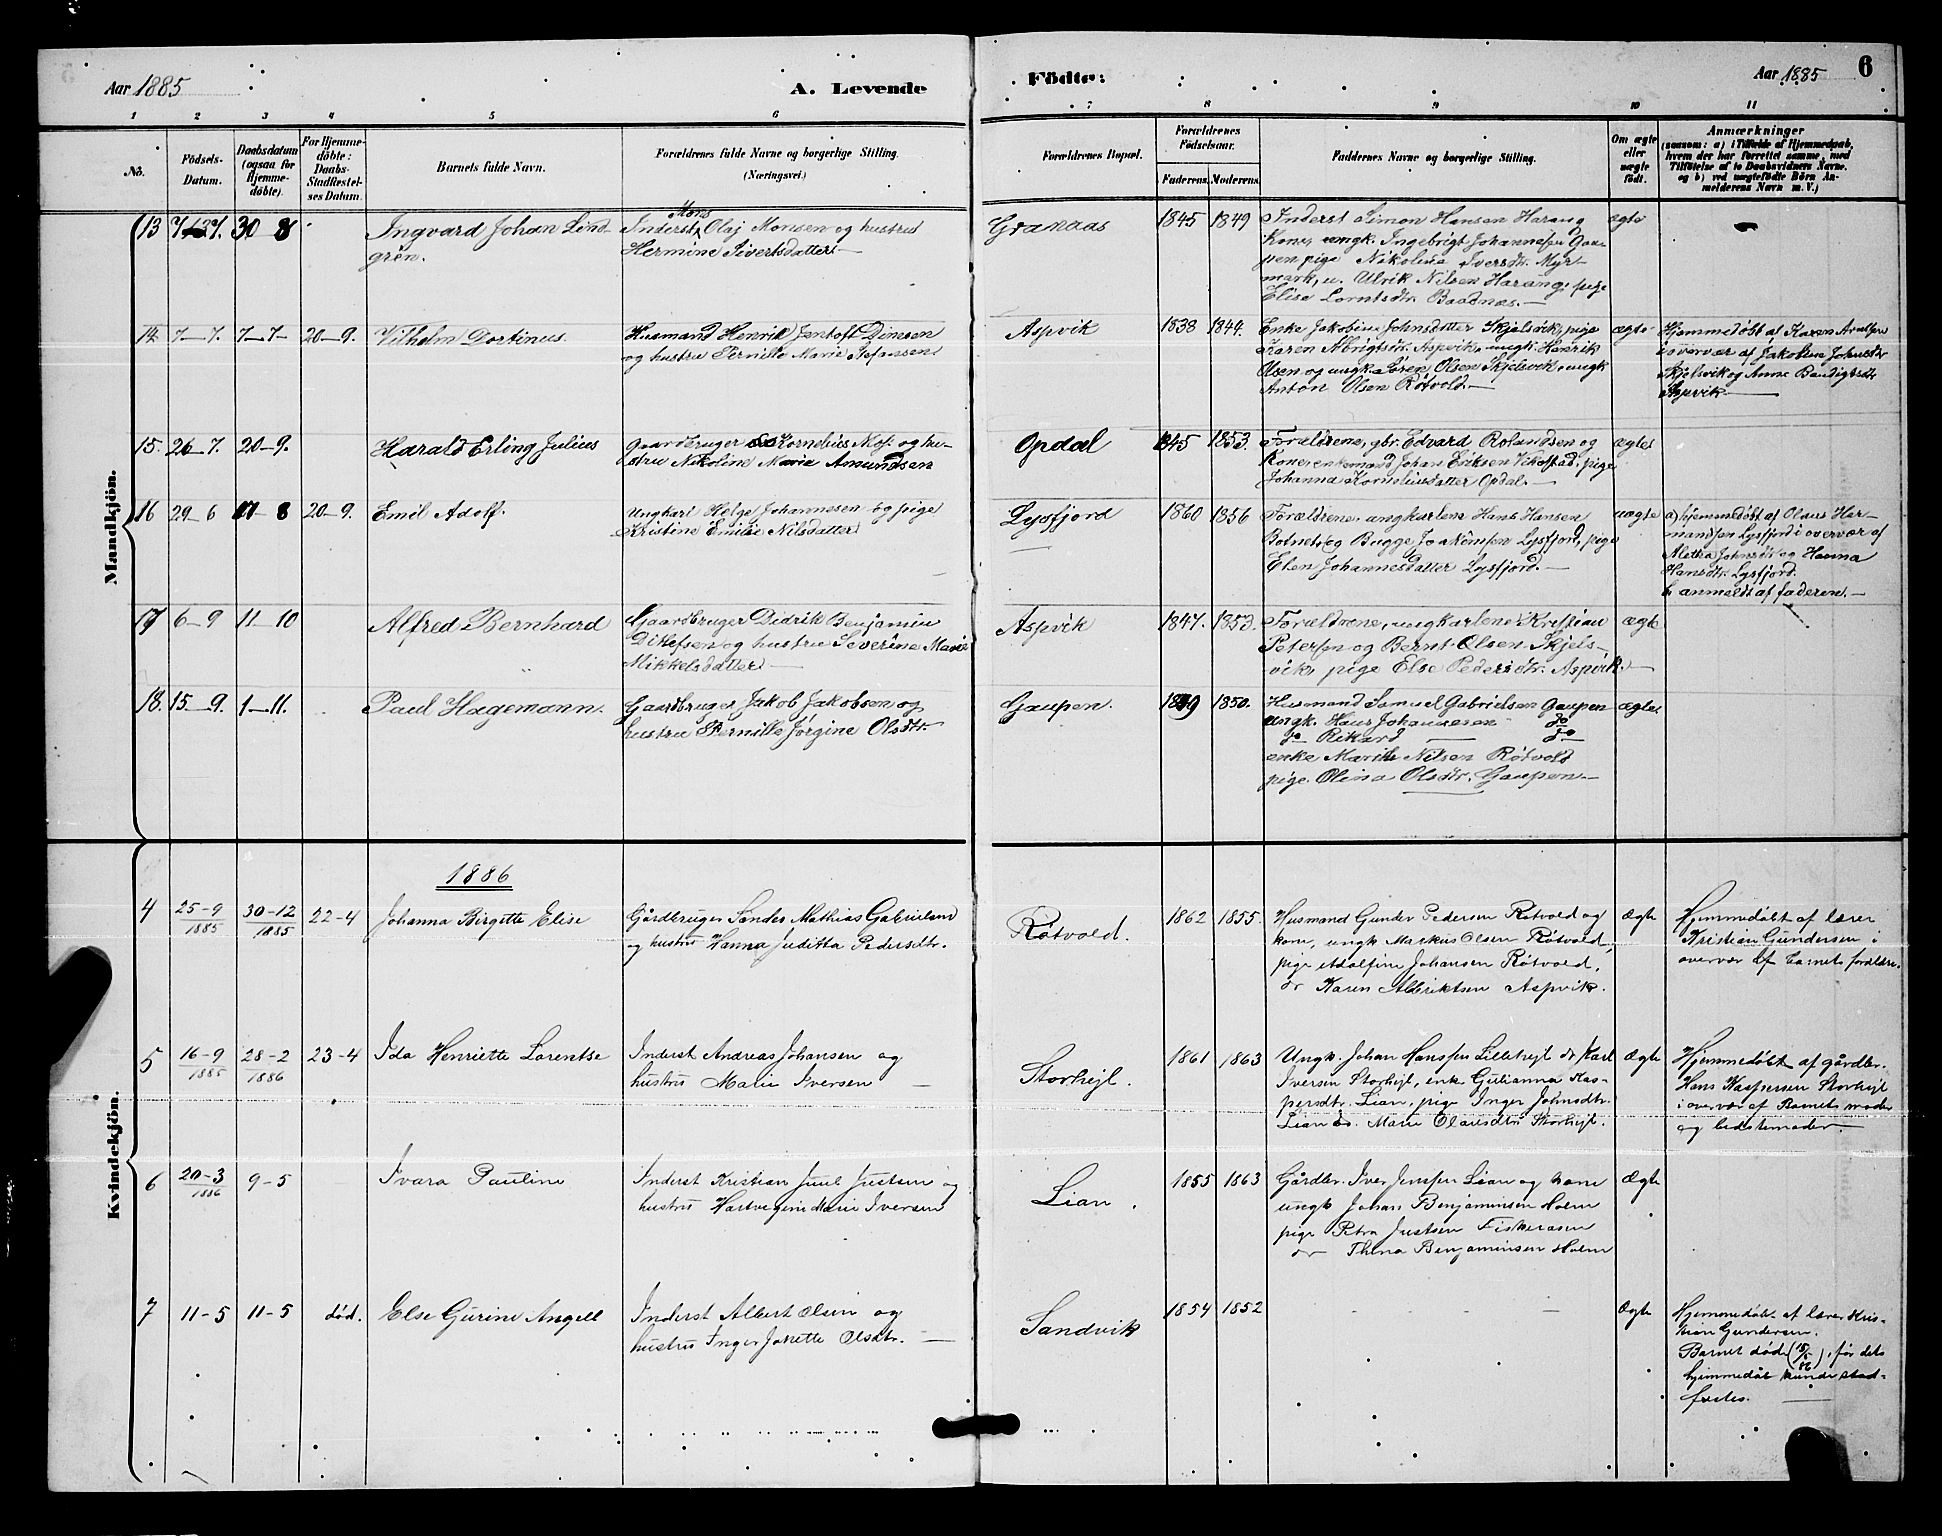 Aar 1885
A. Levende
Födte:
Aar 1885
6
1 2 3 4 5 6 7 8 9 10 11
No.
Födsels-
Datum.
Daabsdatum
(ogsaa for
Hjemme-
döbte).
For Hjemme-
döbte:
Daabs-
Stadfæstel-
ses Datum.
Barnets fulde Navn.
Forældrenes fulde Navne og borgerlige Stilling.
(Næringsvei.)
Forældrenes Bopæl.
Forældrenes
Födselsaar.
Faderens. Moderens.
Faddernes Navne og borgerlige Stilling.
Om ægte
eller
uægte
födt.
Anmærkninger
(saasom: a) i Tilfælde af Hjemmedaab,
hvem der har forrettet samme, med
Tilföielse af to Daabsvidners Navne.
og b) ved uægtefödte Börn An-
melderens Navn m. V.)
Mandkjön.
13 30–8 Ingvard Johan Lind
grén.
Mons
Inderst Olaj Monsen og hustru
Hermine Sivertsdatter.—
Granaas 1845 1849
Inderst Simon Hansen Harang
Kone, ungk. Ingebrigt Johannesen Gau-
pen pige Nikolina Iversdtr. Myr-
mark, u. Ulrik Nilsen Harang, pige
Elise Lorntsdtr. Baadnas.—
ægte —
14 7–7. 7–7– 20–9. Vilhelm Dortinus.
Husmand Henrik Jentoft Dinesen
og hustru Pernille Marie
Aspvik 1838 1844.
Enke Jakobine Johnsdatter Skjelsvik, pige
Karen Albrigtsdtr. Aspvik, ungk. Henrik
Olsen og ungk. Sören Olsen Skjelsvik, ungk
Anton Olsen Røtvold.—
ægte
Hjemmedøbt af Karen
i overvær af Jakobine Johnsdtr
Skjelsvik og Anne
Aspvik.—
15. 26–7. 20–9. Harald Erling Julius
Gaardbruger Kornelius og hu-
stru Nikoline Marie Amundsen
Opdal 1845 1853.
Forældrene, gbr. Edvard Rolandsen og
Kone, enkemand Johan Eriksen Vikestad, pige
Johanna Korneliusdatter Opdal.—
ægte
16 29–6 20–9. Emil Adolf.
Ungkarl Helge Johannesen og pige
Kristine Emilie Nilsdatter
Lysfjord 1860 1856
Forældrene, ungkarlene Hans Hansen
Botnet og Bugge Joakimsen Lysfjord, pige
Elen Johannesdatter Lysfjord.—
uægte
a) hjemmedøbt af Olaus Her-
mandsen Lysfjord i overvær af
Aletha Johnsdtr og Hanna
Hansdtr. Lysfjord.
b anmeldt af faderen.—
17 6–9 11–10 Alfred Bernhard
Gaardbruger Didrik Benjamin
Ditlefsen og hustru Severine Marie
Mikkelsdatter—
Aspvik 1847. 1853.
Forældrene, ungkarlene Kristian
Petersen og Bernt Olsen Skjels-
vik, pige Else Pedersdtr. Aspvik.—
ægte
18. 15–9. 1–11. Paul Hagemann.
Gaardbruger Jakob Jakobsen og
hustru Pernille Jørgine Olsdtr.
Gaupen. 1849 1850.
Husmand Samuel Gabrielsen Gaupen
ungk. Hans Johannesen do
do Rikard — do
enke Marith Nilsen Røtvold
pige Olina Olsdtr. Gaupen—
ægte
Kvindekjön.
1886
4 25–9
1885
30–12
1885
22–4 Johanna Birgitte Elise
Gårdbruger Sander Mathias Gabrielsen
og hustru Hanna Juditta Pedersdtr.
Røtvold. 1862 1855.
Husmand Gunder Pedersen Røtvold og
kone, ungk Markus Olsen Røtvold,
pige Adolfine Johansen Røtvold,
do Karen Albriktsen Aspvik.
Ægte
Hjemmedøbt af lærer
Kristian Gundersen i
overvær af barnets forældre.
5 16–9
1885
28–2
1886
23–4 Ida Henriette Lorentse
Inderst Andreas Johansen og
hustru Marie Iversen —
Storhejl. 1861 1863
Ungk. Johan Hanssen Lillehejl do Karl
Iversen Storhejl, enk. Gulianna Kas-
persdtr. Lian, pige Inger Johnsdtr.
Lian do. Marie Olausdtr Storhejl.
Ægte
Hjemmedøbt af gårdbr.
Hans Kaspersen Storhejl
i overvær af Barnets moder
og bedstemoder.—
6 20–3
1886
9–5 Ivara Pauline
Inderst Kristian Juul Justsen og
hustru Hartvigine Marie Iversen
Lian. 1855 1863
Gårdbr. Iver Jenssen Lian og kone
ungk Johan Benjaminsen Holm
pige Petra Justsen Fiskeraasen
do Thina Benjaminsen Holm
Ægte
7 11–5 11–5 død. Else Gurine Angell
Inderst Albert Olsen og
hustru Inger Janette Olsdtr. —
Sandvik 1854 1852
Ægte
Hjemmedøbt af lærer Kris-
tian Gundersen.
Barnet døde (15/5 86), før dets
hjemmedåb kunde stad-
fæstes. —